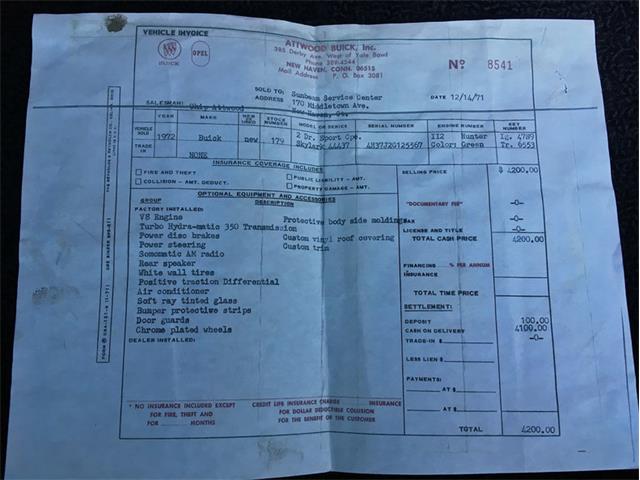 VEHICLE INVOICE
BUICK
OPEL
ATTWOOD BUICK, Inc.
385 Derby Ave. West of Yale Bowl
Phone 389-4544
NEW HAVEN, CONN. 06515
Mail Address P. O. Box 3081
No 8541
SOLD TO: Sunbeam Service Center
ADDRESS 170 Middletown Ave.
New Haven, Ct.
DATE 12/14/71
SALESMAN: Chip Attwood
YEAR MAKE NEW OR USED STOCK NUMBER MODEL OR SERIES SERIAL NUMBER ENGINE NUMBER KEY NUMBER
VEHICLE SOLD 1972 Buick new 179 2 Dr. Sport Cpe. Skylark 44437 4H37J2G125567 112 Hunter Ig. 4789
Color: Green Tr. 6553
TRADE IN NONE
INSURANCE COVERAGE INCLUDES
FIRE AND THEFT PUBLIC LIABILITY - AMT.
COLLISION - AMT. DEDUCT. PROPERTY DAMAGE - AMT.
OPTIONAL EQUIPMENT AND ACCESSORIES
GROUP DESCRIPTION
FACTORY INSTALLED:
V8 Engine Protective body side moldings
Turbo Hydra-matic 350 Transmission
Power disc brakes Custom vinyl roof covering
Power steering Custom trim
Somomatic AM radio
Rear speaker
White wall tires
Positive traction Differential
Air conditioner
Soft ray tinted glass
Bumper protective strips
Door guards
Chrome plated wheels
DEALER INSTALLED:
SELLING PRICE $ 4200.00
"DOCUMENTARY FEE" -0-
TAX -0-
LICENSE AND TITLE -0-
TOTAL CASH PRICE 4200.00
FINANCING % PER ANNUM
INSURANCE
TOTAL TIME PRICE
SETTLEMENT:
DEPOSIT 100.00
CASH ON DELIVERY 4100.00
TRADE-IN $ -0-
LESS LIEN $
PAYMENTS:
AT $
AT $
TOTAL 4200.00
* NO INSURANCE INCLUDED EXCEPT CREDIT LIFE INSURANCE CHARGE INSURANCE
FOR FIRE, THEFT AND FOR DOLLAR DEDUCTIBLE COLLISION
FOR MONTHS FOR THE BENEFIT OF THE CUSTOMER